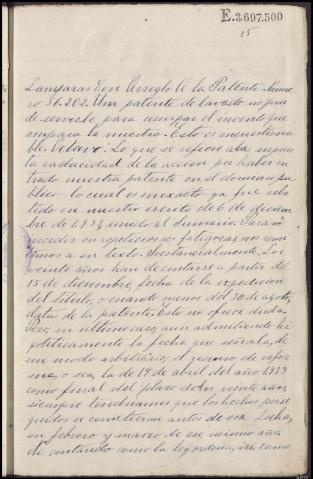 E.3.697.300
15
Lamparas Con Arreglo A la Patente Núme
ro 36.202. Una patente de lavado no pue
de servirle, para usurpar el invento que
ampara la nuestra. Esto es incuestiona
ble. Octavo: Lo que se refiere a la supues
ta caducidad de la accion por haber en
trado nuestra patente en el dominio pu
blico - lo cual es inexacto ya fue reba
tido en nuestro escrito de 6 de diciem
bre de 1.933 unido al sumario. Para no
incurrir en repeticiones fatigosas nos remi
timos a su texto. Sustancialmente. Los
veinte años han de contarse a partir del
15 de diciembre, fecha de la expedicion
del titulo, o cuando menos del 30 de agosto,
data de la patente. Esto no ofrece duda.
Pero, en ultimo caso, aun admitiendo hi
poteticamente la fecha que señala, de
un modo arbitrario, el recurso de refor
ma, o sea, la de 19 de abril del año 1933
como final del plazo de los veinte años,
siempre tendriamos que los hechos perse
guidos se cometieron antes de esa fecha,
en febrero y marzo de ese mismo año.
Ni contando como la ley ordena, ni como